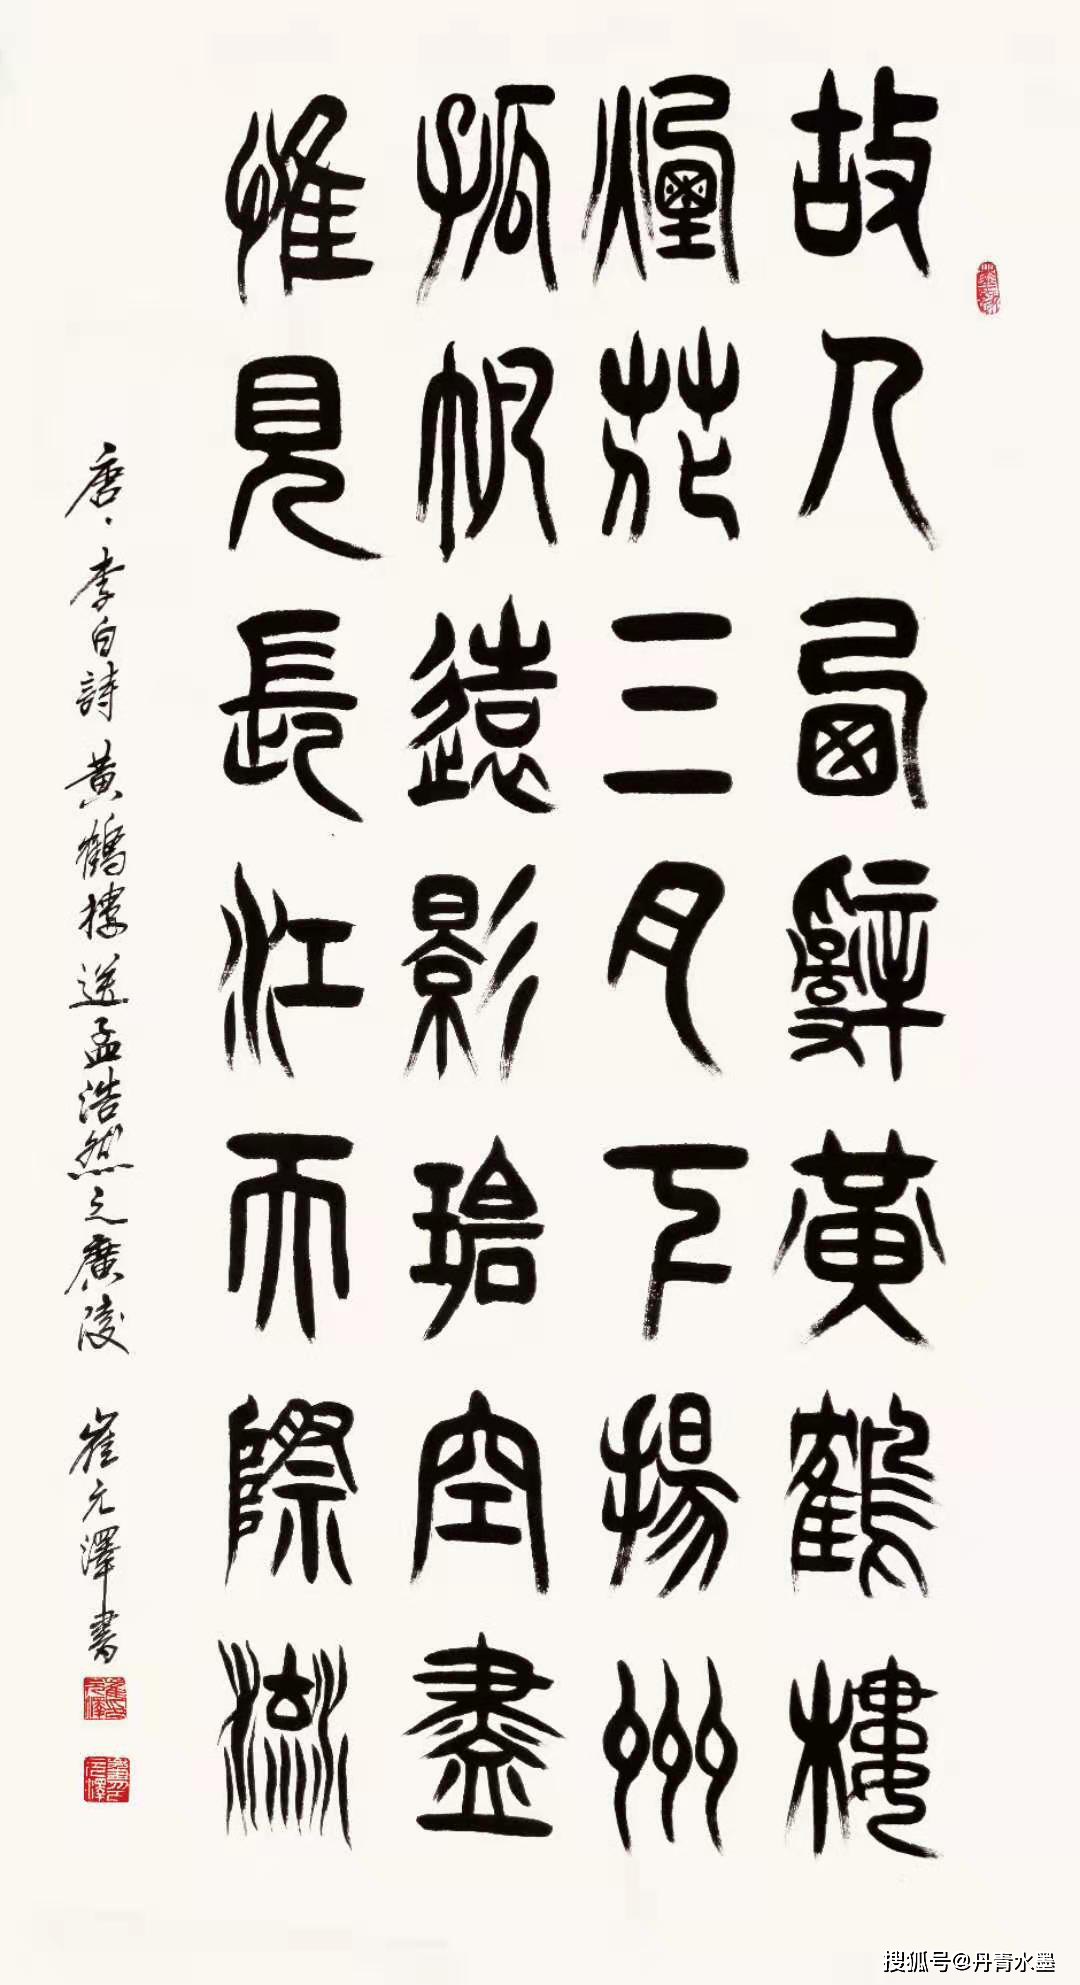 故人西辭黃鶴樓
煙花三月下揚州
孤帆遠影碧空盡
惟見長江天際流
唐、李白詩黃鶴樓送孟浩然之廣陵 崔元澤書
搜狐号@丹青水墨